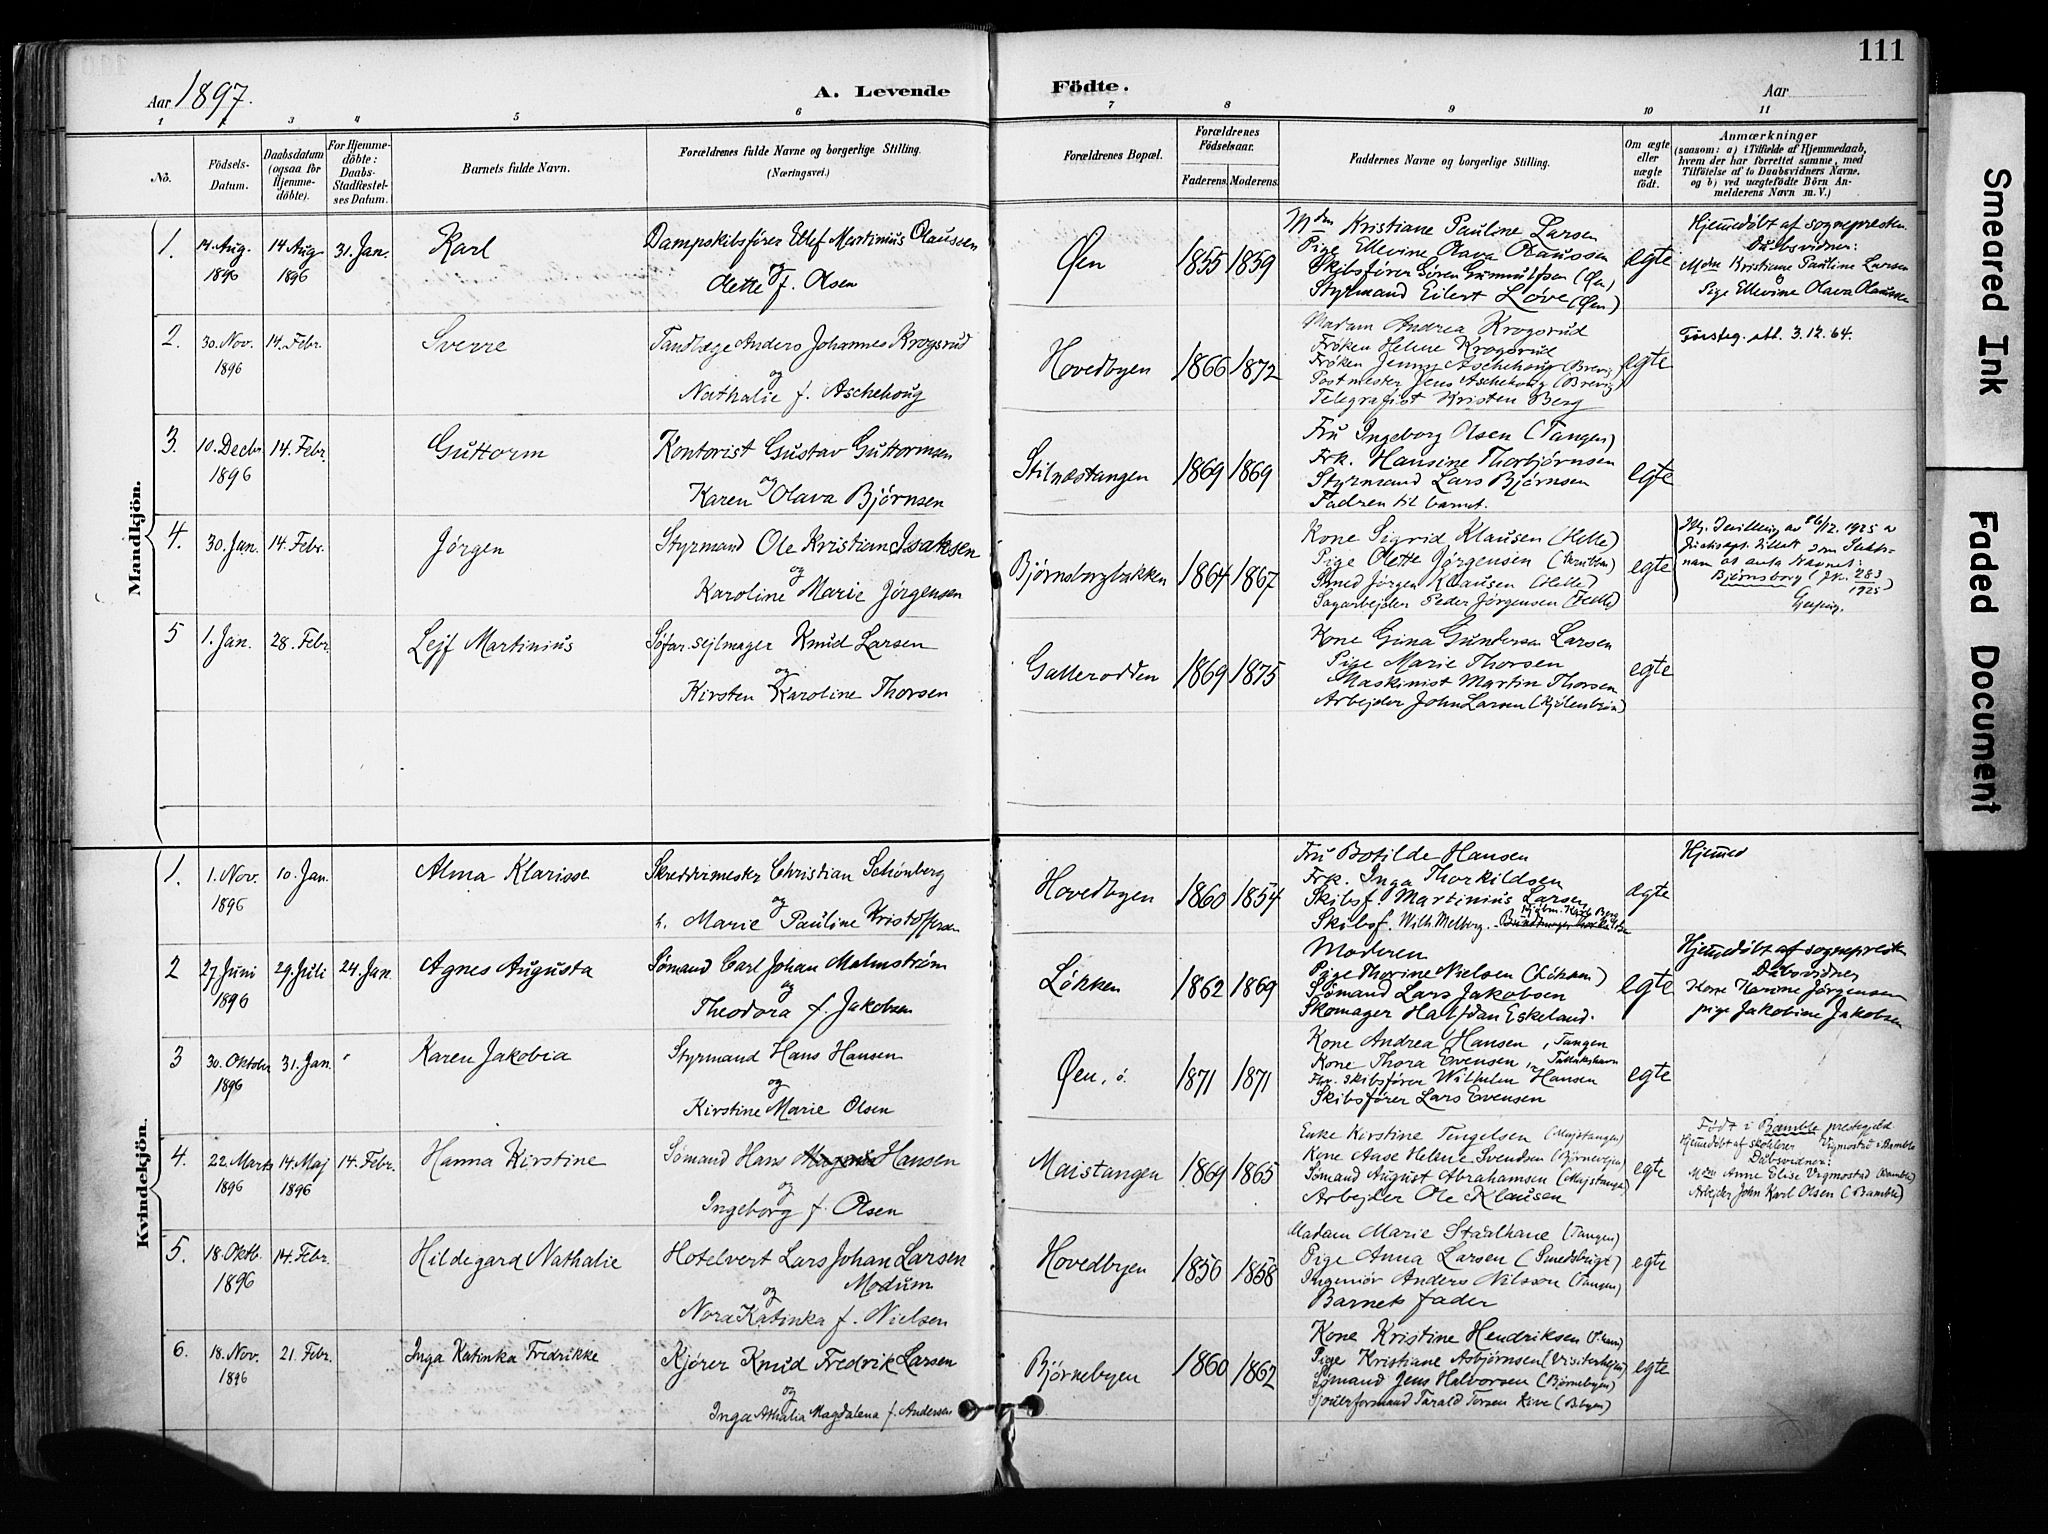 111
Aar 1897.
A. Levende Födte.
Aar
1 2 3 4 5 6 7 8 9 10 11
No.
Födsels-Datum.
Daabsdatum (ogsaa for Hjemmedöbte).
For Hjemmedöbte: Daabs-Stadfæstelses Datum.
Barnets fulde Navn.
Forældrenes fulde Navne og borgerlige Stilling. (Næringsvei.)
Forældrenes Bopæl.
Forældrenes Födselsaar.
Faderens. Moderens.
Faddernes Navne og borgerlige Stilling.
Om ægte eller uægte födt.
Anmærkninger
(saasom: a) i Tilfælde af Hjemmedaab, hvem der har forrettet samme, med Tilföielse af to Daabsvidners Navne, og b) ved uægtefödte Börn Anmelderens Navn m. V.)
Mandkjön.
1. 14 Aug. 1896
14 Aug. 1896
31. Jan.
Karl
Dampskibsfører Ellef Martinius Olaussen
og
Olette f. Olsen
Øen
1855 1859
Mdm Kristiane Pauline Larsen
Pige Ellevine Olava Olaussen
Skibsfører Søren Gunnulfsen (Øen)
Styrmand Eilert Løve (Øen)
egte
Hjemmedøbt af sognepresten
Dåbsvidner:
Mdm Kristiane Pauline Larsen
Pige Ellevine Olava Olaussen
2. 30. Nov. 1896
14. Febr.
Sverre
Tandlæge Anders Johannes Krogsrud
og
Nathalie f. Aschehoug
Hovedbyen
1866 1872
Madam Andrea Krogsrud
Frøken Helene Krogsrud
Frøken Jenny Aschehoug (Brevig)
Postmester Jens Aschehoug (Brevig)
Telegrafist Kristen Berg
egte
Førsteg. att. 3.12.64.
3. 10. Decbr. 1896
14. Febr.
Guttorm
Kontorist Gustav Guttormsen
og
Karen Olava Bjørnsen
Stilnæstangen
1869 1869
Fru Ingeborg Olsen (Tangen)
Frk. Hansine Thorbjørnsen
Styrmand Lars Bjørnsen
Fadren til barnet.
egte
4. 30. Jan.
14. Febr.
Jørgen
Styrmand Ole Kristian Isaksen
og
Karoline Marie Jørgensen
Bjørnsborgbakken
1864 1867
Kone Sigrid Klausen (Helle)
Pige Olette Jørgensen
Smed Jørgen Klausen (Helle)
Sagarbejder Peder Jørgensen (Helle)
egte
1925
nam at anta Navnet:
Bjørnsborg (Jr. 283/1925)
5 1. Jan.
28. Febr.
Lejf Martinius
Søfar. sejlmager Knud Larsen
og
Kirsten Karoline Thorsen
Gallerodden
1869 1875
Kone Gina Gundersen Larsen
Pige Marie Thorsen
Maskinist Martin Thorsen
Arbejder John Larsen
egte
Kvindekjön.
1. 1. Nov. 1896
10. Jan.
Alma Klarisse
Skreddermester Christian Schønberg
og
h. Marie Pauline Kristoffersen
Hovedbyen
1860 1854
Fru Botilde Hansen
Frk. Inga Thorkildsen
Skibsf. Martinius Larsen
Skibsf. Wilh. Melberg.
ægte
Hjemmed
2 27 Juni 1896
29. Juli
24. Jan.
Agnes Augusta
Sømand Carl Johan Malmstrøm
og
Theodora f. Jakobsen
Løkken
1862 1869
Moderen
Pige Thorine Nielsen (Løkken)
Sømand Lars Jakobsen
Skomager Halfdan Eskeland.
egte
Hjemmedøbt af sognepresten
Dåbsvidner
Kone Hanne Jørgensen
pige Jakobine Jakobsen
3 30. Oktober 1896
31. Jan.
Karen Jakobia
Styrmand Hans Hansen
og
Kirstine Marie Olsen
Øen, ö.
1871 1871
Kone Andrea Hansen, Tangen
Kone Thora Evensen,
Fhv. skibsfører Wilhelm Hansen
Skibsfører Lars Evensen
egte
4. 22. Marts 1896
14. Maj 1896
14. Febr.
Hanna Kirstine
Sømand Hans Hansen
og
Ingeborg f. Olsen
Maistangen
1869 1865
Enke Kirstine Tengelsen (Majstangen)
Kone Aase Helene Svendsen (Bjørnevejen)
Sømand August Abrahamsen (Majstangen)
Arbejder Ole Klausen
egte
Født i Bamble prestegjeld
Hjemmedøbt af skolelærer Vigmostad i Bamble
Dåbsvidner:
Mdm Anne Elise Vigmostad (Bamble)
Arbejder John Karl Olsen (Bamble)
5. 18. Oktb. 1896
14. Febr.
Hildegard Nathalie
Hotelvert Lars Johan Larsen
Modum
og
Nora Katinka f. Nielsen
Hovedbyen
1850 1858
Madam Marie Staalhane (Tangen)
Pige Anna Larsen (Smedsbrigt)
Ingeniør Anders Nilsson (Tangen)
Barnets fader
egte
6. 18. Nov. 1896
21. Febr.
Inga Katinka Fredrikke
Kjører Knud Fredrik Larsen
og
Inga Athalia Magdalena f. Andersen
Bjørnebyen
1860 1862
Kone Kristine Hendriksen
Pige Kristiane Asbjørnsen
Sømand Jens Halvorsen (Bjørnebyen)
Sjouerformand Tarald Torsen
egte
Smeared Ink
Faded Document